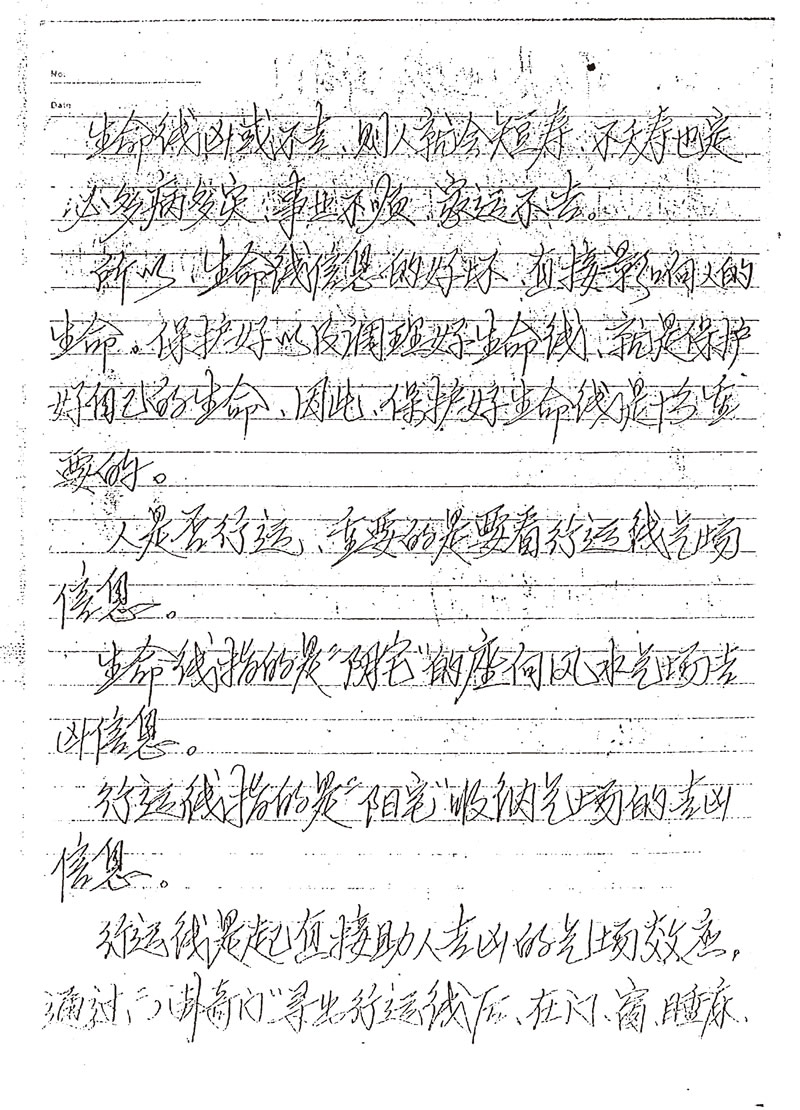 No.
Date
生命线凶或不吉、则人就会短寿、不夭寿也定
必多病多灾、事业不顺、家运不吉。
所以、生命线信息的好坏、直接影响人的
生命。保护好以及调理好生命线、就是保护
好自己的生命、因此、保护好生命线是十分重
要的。
人是否行运、重要的是要看行运线气场
信息。
生命线指的是“阴宅”的座向风水气场吉
凶信息。
行运线指的是“阳宅”吸纳气场的吉凶
信息。
行运线是起直接助人吉凶的气场效应。
通过、“八卦奇门”寻出行运线后、在门、窗、睡床、